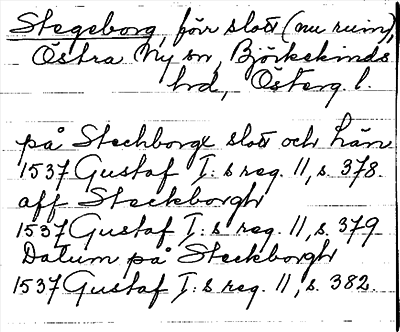 Stegeborg, förr slott (nu ruin),
Östra Ny sn, Björkekinds
hrd, Österg. l.
på Stechborgx slott och hän
1537 Gustaf I:s reg. 11, s. 378.
aff Steckborgh
1537 Gustaf I:s reg. 11, s. 379
Datum på Steckborgh
1537 Gustaf I:s reg. 11, s. 382.